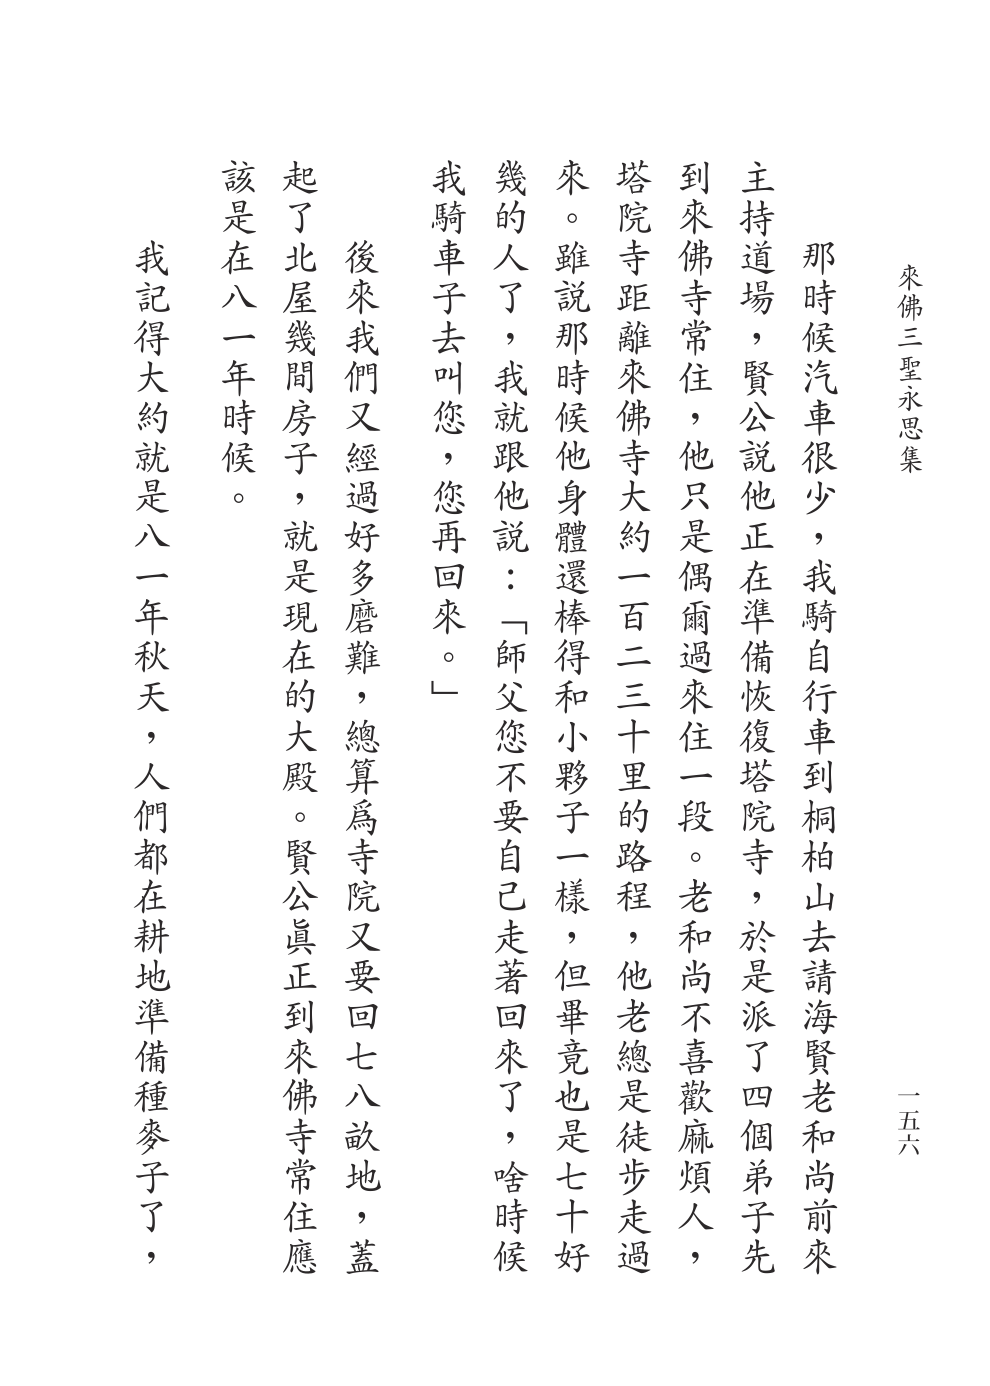 來佛三聖永思集
一五六
那時候汽車很少，我騎自行車到桐柏山去請海賢老和尚前來
主持道場，賢公説他正在準備恢復塔院寺，於是派了四個弟子先
到來佛寺常住，他只是偶爾過來住一段。老和尚不喜歡麻煩人，
塔院寺距離來佛寺大約一百二三十里的路程，他老總是徒步走過
來。雖説那時候他身體還棒得和小夥子一樣，但畢竟也是七十好
幾的人了，我就跟他説：「師父您不要自己走著回來了，啥時候
我騎車子去叫您，您再回來。」
後來我們又經過好多磨難，總算爲寺院又要回七八畝地，蓋
起了北屋幾間房子，就是現在的大殿。賢公眞正到來佛寺常住應
該是在八一年時候。
我記得大約就是八一年秋天，人們都在耕地準備種麥子了，